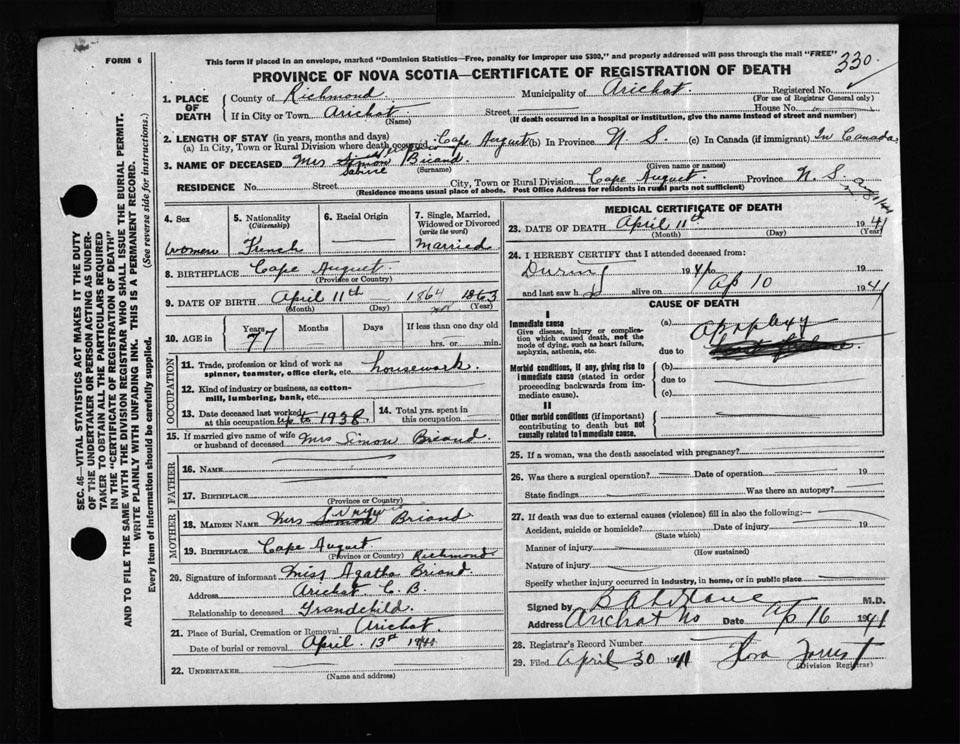 FORM 6
This form if placed in an envelope, marked "Dominion Statistics—Free, penalty for improper use $300," and properly addressed will pass through the mail "FREE"
330
PROVINCE OF NOVA SCOTIA—CERTIFICATE OF REGISTRATION OF DEATH
1. PLACE OF DEATH
County of Richmond. Municipality of Arichat. Registered No.
(For use of Registrar General only)
If in City or Town Arichat Street House No.
(Name) (If death occurred in a hospital or institution, give the name instead of street and number)
2. LENGTH OF STAY (in years, months and days)
(a) In City, Town or Rural Division where death occurred Cape August (b) In Province N S. (c) In Canada (if immigrant) In Canada
3. NAME OF DECEASED Mrs Simon Briand.
Sabine (Surname) (Given name or names)
RESIDENCE No. Street City, Town or Rural Division Cape August. Province N. S.
(Residence means usual place of abode. Post Office Address for residents in rural parts not sufficient)
4. Sex
women
5. Nationality
(Citizenship)
French
6. Racial Origin
7. Single, Married, Widowed or Divorced
(write the word)
Married
8. BIRTHPLACE Cape August.
(Province or Country)
9. DATE OF BIRTH April 11th 1864 1863
(Month) (Day) (Year)
10. AGE in
Years Months Days If less than one day old
77 hrs. or min.
OCCUPATION
11. Trade, profession or kind of work as spinner, teamster, office clerk, etc. housework.
12. Kind of industry or business, as cotton-mill, lumbering, bank, etc.
13. Date deceased last worked at this occupation up to 1938
14. Total yrs. spent in this occupation
15. If married give name of wife or husband of deceased Mrs Simon Briand.
FATHER
16. NAME
17. BIRTHPLACE
(Province or Country)
MOTHER
18. MAIDEN NAME Mrs Simon Briand
19. BIRTHPLACE Cape August Richmond.
(Province or Country)
20. Signature of informant Miss Agatha Briand.
Address Arichat C. B.
Relationship to deceased Grandchild.
21. Place of Burial, Cremation or Removal Arichat.
Date of burial or removal April 13th 1941
22. UNDERTAKER
(Name and address)
MEDICAL CERTIFICATE OF DEATH
23. DATE OF DEATH April 11th 1941
(Month) (Day) (Year)
24. I HEREBY CERTIFY that I attended deceased from:
During 1941 to 19
and last saw h alive on Ap 10 1941
CAUSE OF DEATH
I
Immediate cause
Give disease, injury or complication which caused death, not the mode of dying, such as heart failure, asphyxia, asthenia, etc.
(a) Apoplexy
due to
Morbid conditions, if any, giving rise to immediate cause (stated in order proceeding backwards from immediate cause).
(b)
due to
(c)
II
Other morbid conditions (if important) contributing to death but not causally related to immediate cause.
25. If a woman, was the death associated with pregnancy?
26. Was there a surgical operation? Date of operation 19
State findings Was there an autopsy?
27. If death was due to external causes (violence) fill in also the following:—
Accident, suicide or homicide? Date of injury 19
(State which)
Manner of injury
(How sustained)
Nature of injury
Specify whether injury occurred in industry, in home, or in public place
Signed by M.D.
Address Arichat NS Date Ap 16 1941
28. Registrar's Record Number
29. Filed April 30 1941
(Division Registrar)
SEC. 46—VITAL STATISTICS ACT MAKES IT THE DUTY
OF THE UNDERTAKER OR PERSON ACTING AS UNDER-
TAKER TO OBTAIN ALL THE PARTICULARS REQUIRED
IN THE "CERTIFICATE OF REGISTRATION OF DEATH"
AND TO FILE THE SAME WITH THE DIVISION REGISTRAR WHO SHALL ISSUE THE BURIAL PERMIT.
WRITE PLAINLY WITH UNFADING INK. THIS IS A PERMANENT RECORD.
Every item of information should be carefully supplied. (See reverse side for instructions.)